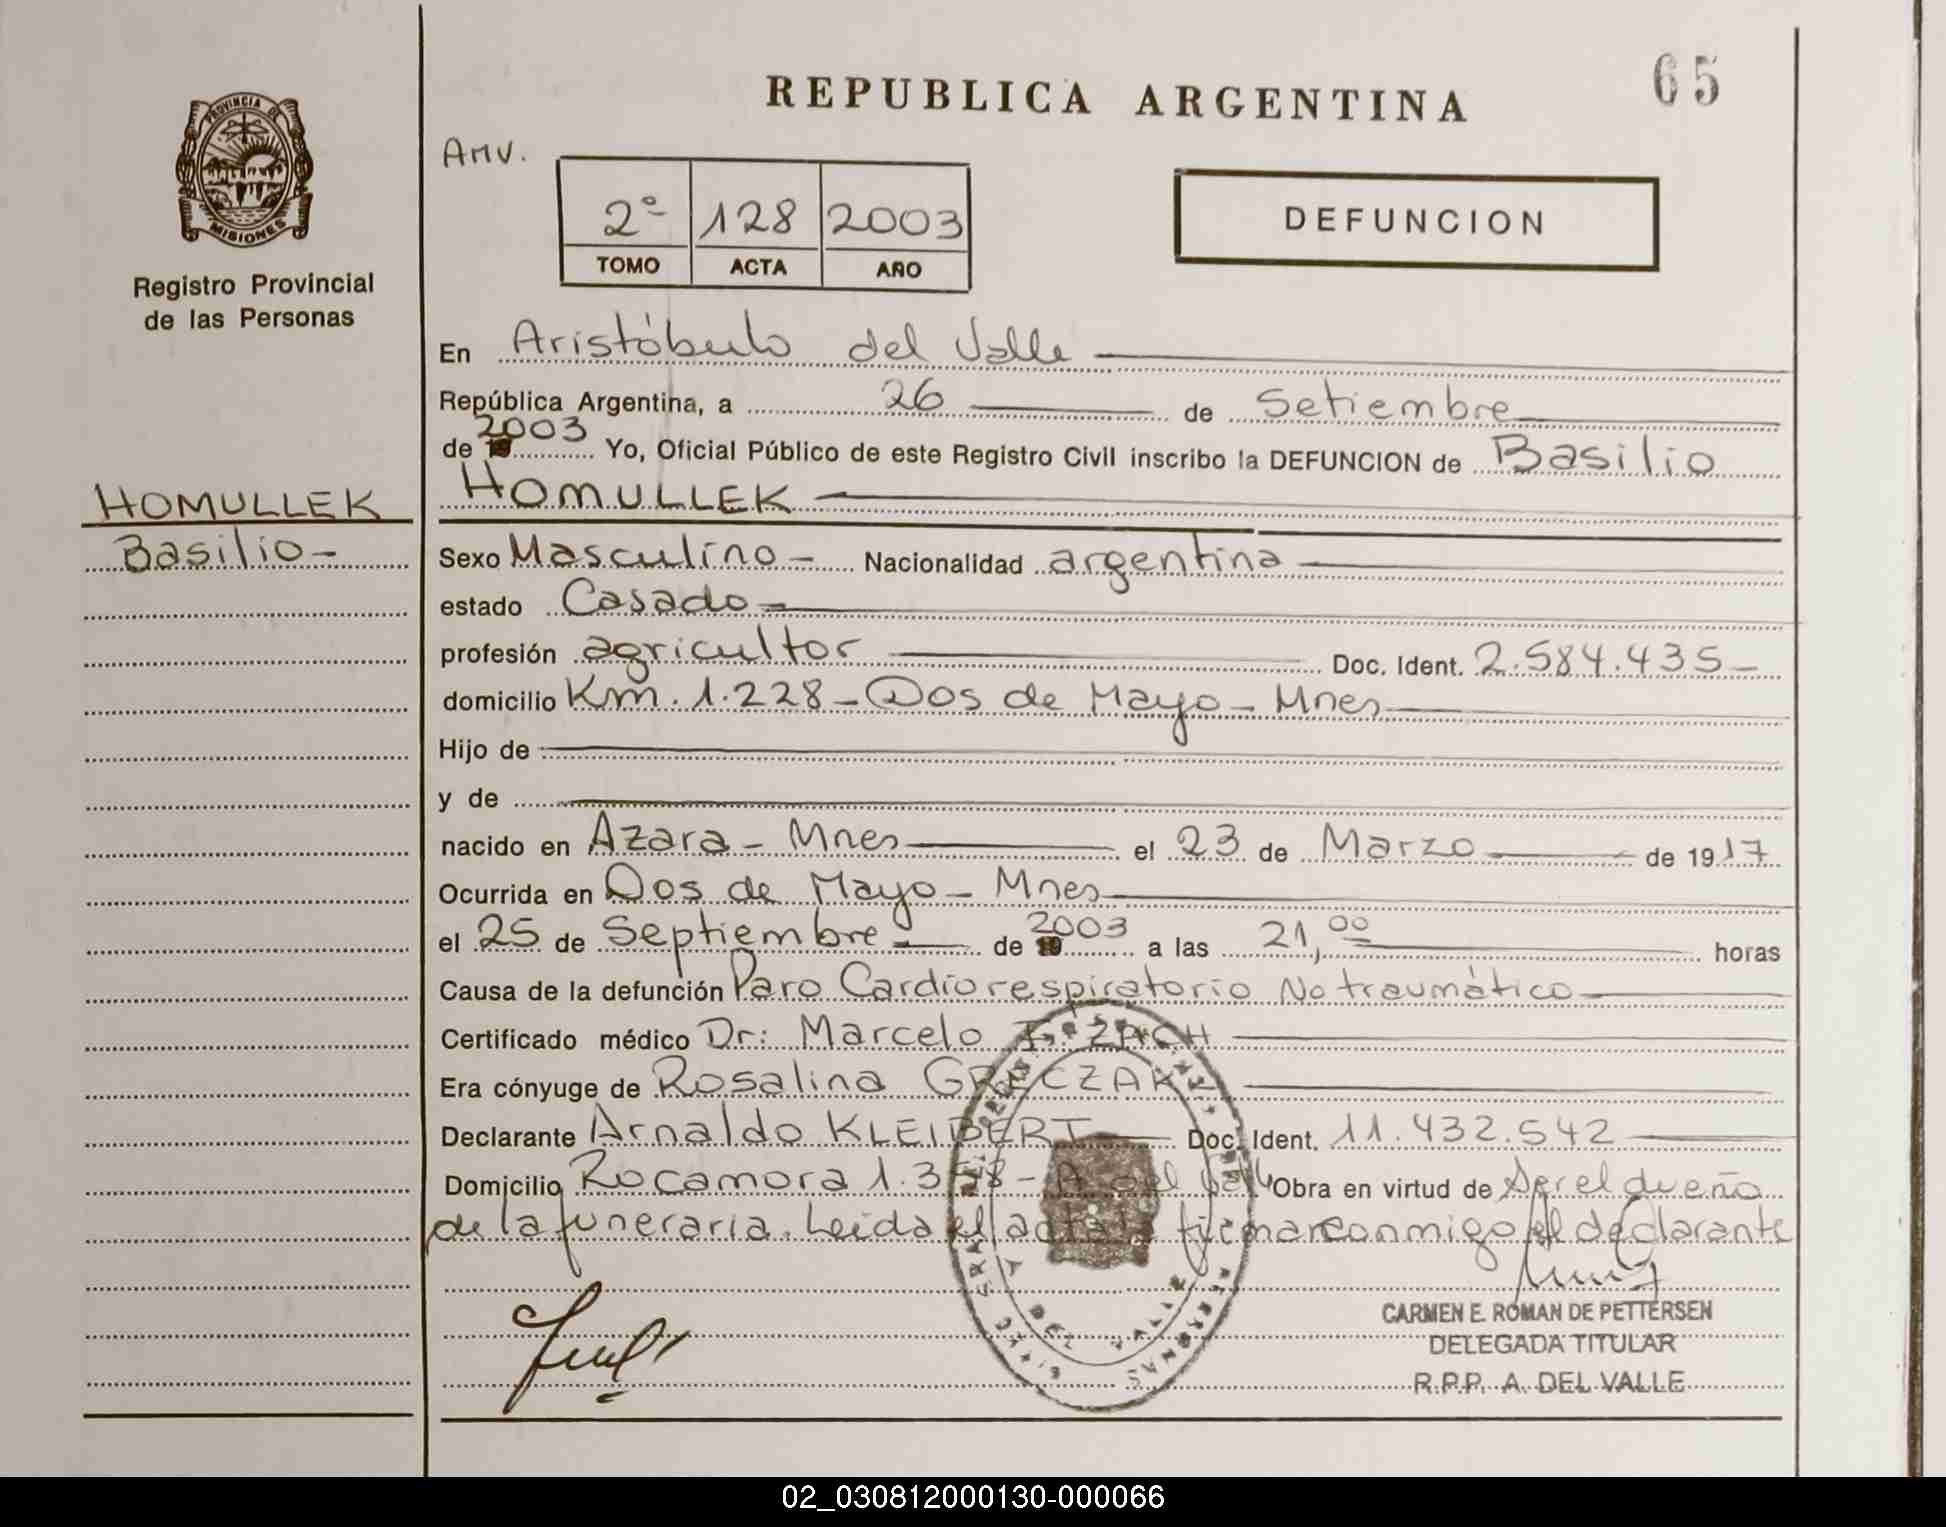 REPUBLICA ARGENTINA
65
PROVINCIA DE
MISIONES
Registro Provincial
de las Personas
Amv.
2º 128 2003
TOMO ACTA AÑO
DEFUNCION
En Aristóbulo del Valle
República Argentina, a 26 de Setiembre
de 2003 Yo, Oficial Público de este Registro Civil inscribo la DEFUNCION de Basilio
HOMULLEK
HOMULLEK
Basilio-
Sexo Masculino - Nacionalidad argentina
estado Casado
profesión agricultor Doc. Ident. 2.584.435-
domicilio Km. 1.228 - Dos de Mayo - Mnes
Hijo de
y de
nacido en Azara - Mnes el 23 de Marzo de 1917
Ocurrida en Dos de Mayo - Mnes
el 25 de Septiembre - de 2003 a las 21,00 horas
Causa de la defunción Paro Cardiorespiratorio No traumático
Certificado médico Dr: Marcelo ZACH
Era cónyuge de Rosalina GRECZAK
Declarante Arnaldo KLEIBERT Doc. Ident. 11.432.542
Domicilio Rocamora 1.358 - A. del Valle Obra en virtud de Ser el dueño
de la funeraria. Leida el acta la firmar conmigo el declarante
CARMEN E. ROMAN DE PETTERSEN
DELEGADA TITULAR
R.P.P. A. DEL VALLE
02_030812000130-000066